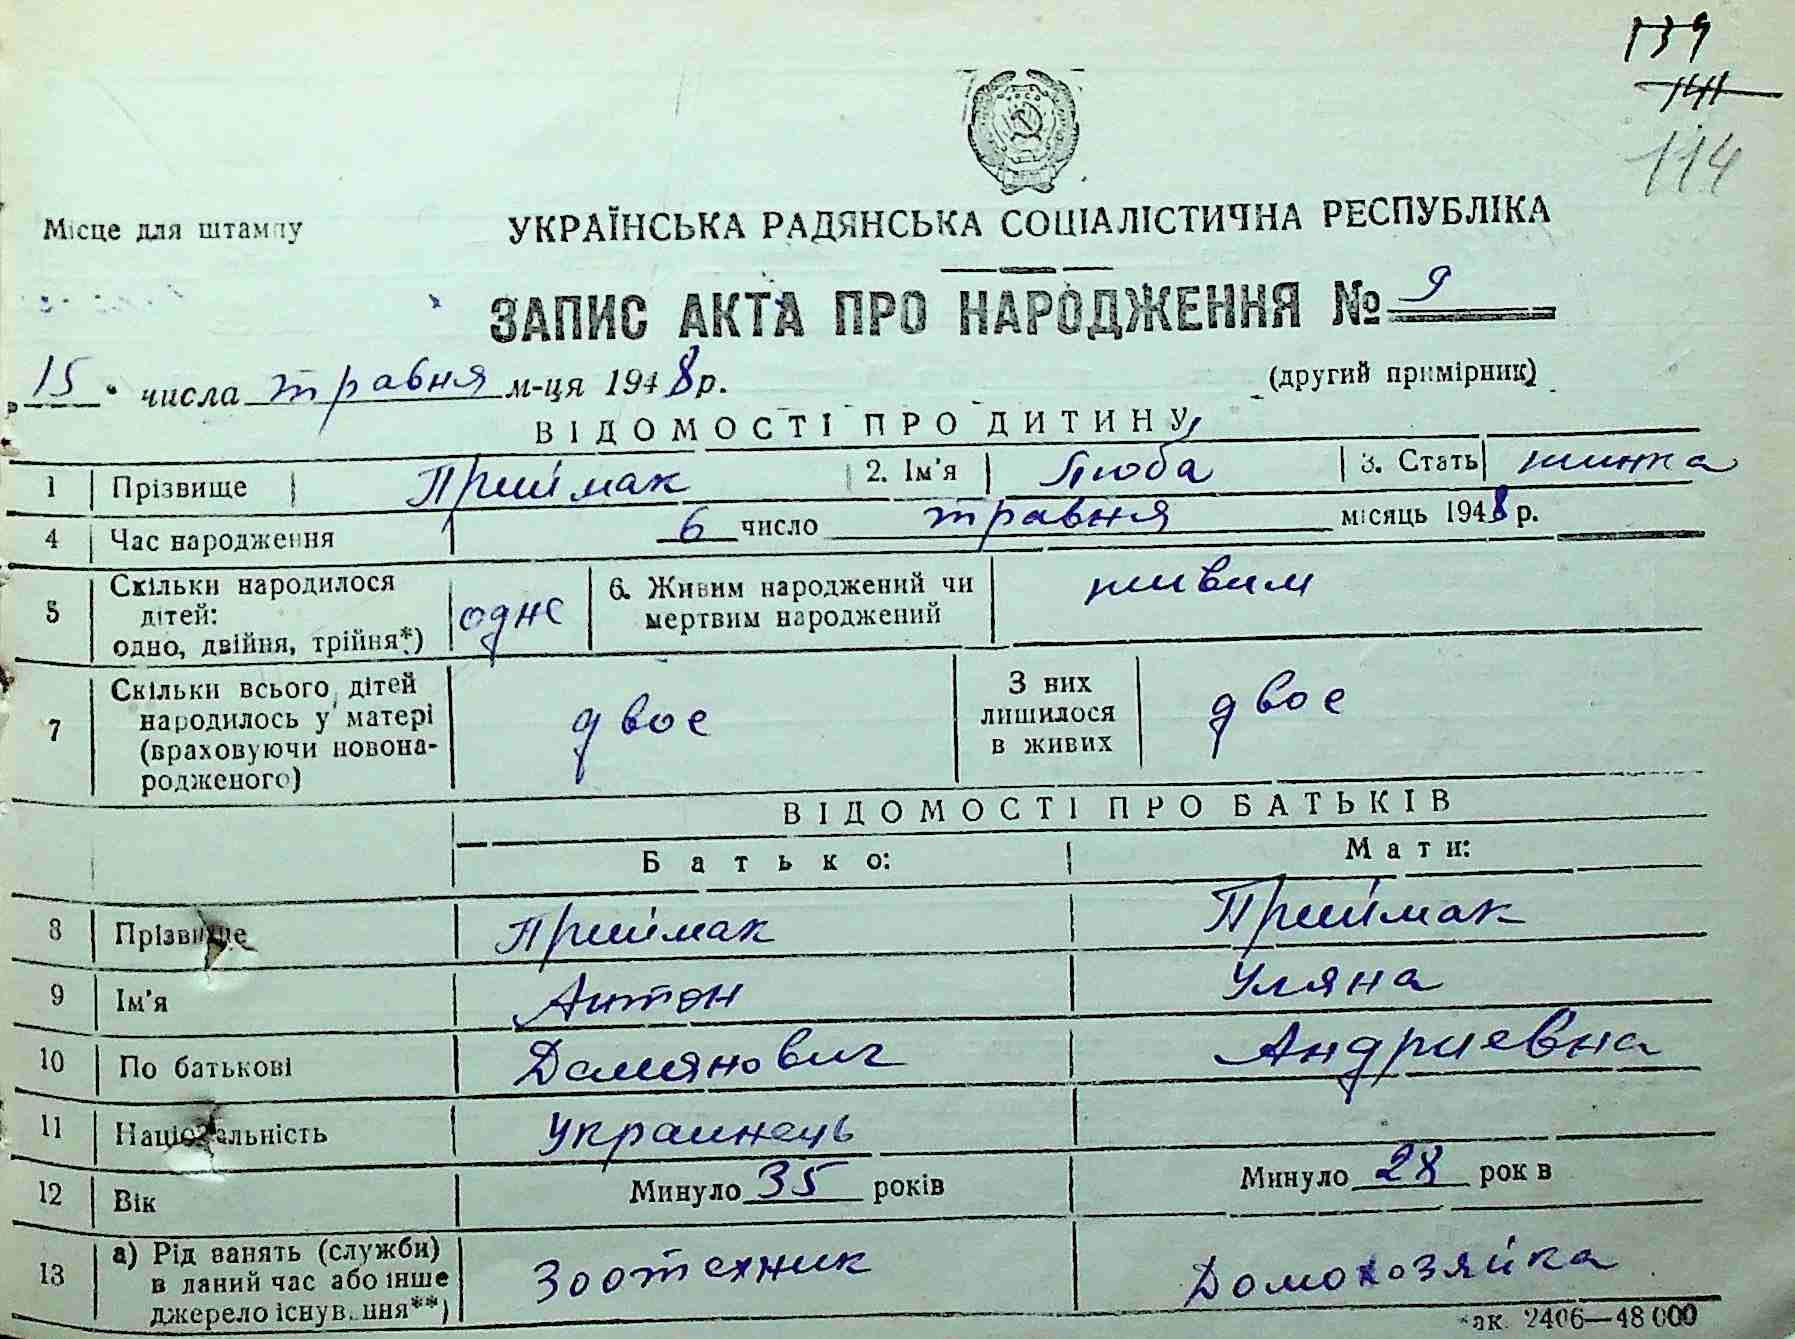 139
141
114
Місце для штампу
УКРАЇНСЬКА РАДЯНСЬКА СОЦІАЛІСТИЧНА РЕСПУБЛІКА
ЗАПИС АКТА ПРО НАРОДЖЕННЯ № 9
„15“ числа травня м-ця 1948 р.
(другий примірник)
ВІДОМОСТІ ПРО ДИТИНУ
1 Прізвище Приймак 2. Ім'я Люба 3. Стать жинка
4 Час народження 6 число травня місяць 1948 р.
5 Скільки народилося дітей: одно, двійня, трійня*) одне 6. Живим народжений чи мертвим народжений живим
7 Скільки всього дітей народилось у матері (враховуючи новонародженого) двое З них лишилося в живих двое
ВІДОМОСТІ ПРО БАТЬКІВ
Батько: Мати:
8 Прізвище Приймак Приймак
9 Ім'я Антон Уляна
10 По батькові Дамянович Андриевна
11 Національність Украинець
12 Вік Минуло 35 років Минуло 28 рок в
13 а) Рід занять (служби) в даний час або інше джерело існув. ння**) Зоотехник Домохозяйка
ак. 2406—48 000